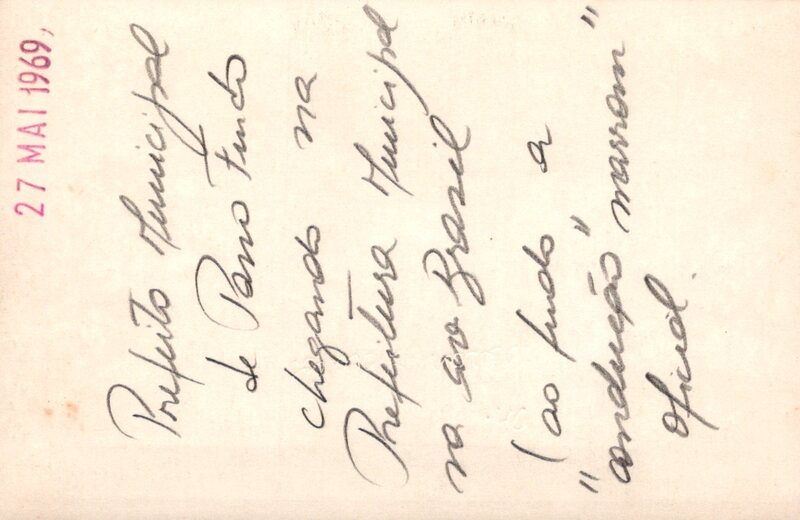 27 MAI 1969,
Prefeito Municipal
de Passo Fundo
chegando na
Prefeitura Municipal
na av Brasil
(ao fundo a
"condução" "marrom"
oficial.